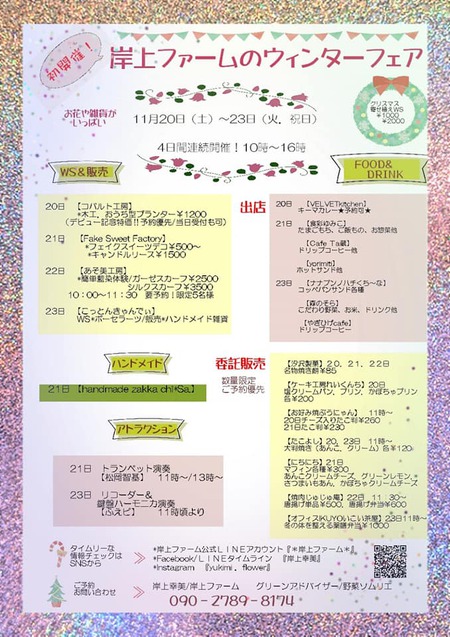 初開催！
岸上ファームのウィンターフェア
お花や雑貨が
いっぱい
11月20日（土）～23日（火、祝日）
4日間連続開催！10時～16時
クリスマス
寄せ植えWS
*￥1000
￥2000
WS&販売
FOOD&
DRINK
出店
20日 【コバルト工房】
*木工、おうち型プランター￥1200
（デビュー記念特価!!予約優先/当日受付も可）
21日 【Fake Sweet Factory】
*フェイクスイーツデコ￥500～
*キャンドルリース￥1500
22日 【あそ美工房】
*簡単藍染体験/ガーゼスカーフ￥2500
シルクスカーフ￥3500
10：00～11：30 要予約！限定5名様
23日 【こっとんきゃんでぃ】
WS*ポーセラーツ/販売*ハンドメイド雑貨
20日 【VELVETkitchen】
キーマカレー★予約可★
21日 【食彩ゆみこ】
たまごもち、ご飯もの、お惣菜他
【Cafe Ta蔵】
ドリップコーヒー他
【yorimiti】
ホットサンド他
23日 【ナナブンノハチくち～な】
コッペパンサンド各種
【森のそら】
こだわり野菜、お米、ドリンク他
【やぎひげcafe】
ドリップコーヒー他
ハンドメイド
21日 【handmade zakka chi*Sa】
アトラクション
21日 トランペット演奏
【松岡智基】 11時～/13時～
23日 リコーダー＆
鍵盤ハーモニカ演奏
【ふえピ】 11時頃より
委託販売
数量限定
ご予約優先
【汐沢製菓】20、21、22日
名物焼き餅￥85
【ケーキ工房れいくんち】20日
塩クリームパン、プリン、かぼちゃプリン
各￥200
【お好み焼ぷうにゃん】 11時～
20日チーズ入りたこ司￥260
21日たこ司￥230
【たこよし】20、23日 11時～
大判焼き（あんこ、クリーム）各￥120
【にちにち】21日
マフィン各種￥300
あんこクリームチーズ、グリーンレモン
さつまいもあん、かぼちゃクリームチーズ
【焼肉じゅじゅ庵】22日 11：30～
唐揚げ単品￥500、唐揚げ弁当￥600
【オフィスIKUYOいこい茶屋】23日11時～
冬の体を整える薬膳弁当￥1000
タイムリーな
情報チェックは
SNSから
*岸上ファーム公式LINEアカウント『＊岸上ファーム＊』
*Facebook/LINEタイムライン 『岸上幸美』
*Instagram 『yukimi．flower』
ご予約
お問い合わせ
岸上幸美/岸上ファーム グリーンアドバイザー/野菜ソムリエ
090-2789-8174